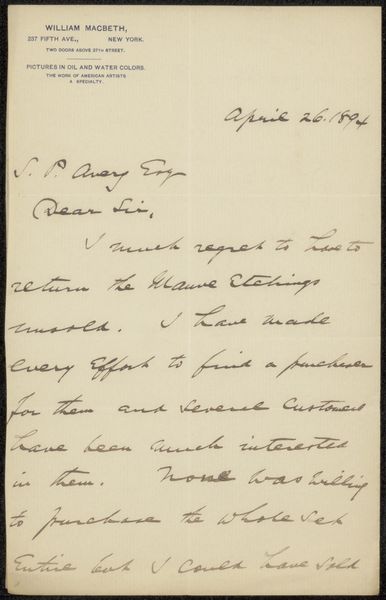 WILLIAM MACBETH,
237 FIFTH AVE., NEW YORK.
TWO DOORS ABOVE 27TH STREET.
PICTURES IN OIL AND WATER COLORS.
THE WORK OF AMERICAN ARTISTS
A SPECIALTY.
April 26. 1894
S. P. Avery Esq
Dear Sir,
I much regret to have to
return the Mauve Etchings
unsold. I have made
every effort to find a purchaser
for them and several customers
have been much interested
in them. None was willing
to purchase the whole set
entire but I could have sold